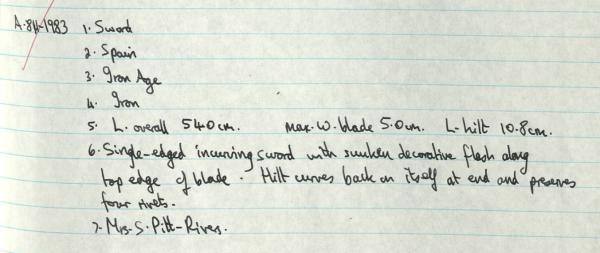 A.84-1983 1. Sword
2. Spain
3. Iron Age
4. Iron
5. L. overall 54.0cm. max. W. blade 5.0cm. L. hilt 10.8cm.
6. Single-edged incurving sword with sunken decorative flesh along
top edge of blade. Hilt curves back on itself at end and preserves
four rivets.
7. Mrs. S. Pitt-Rivers.